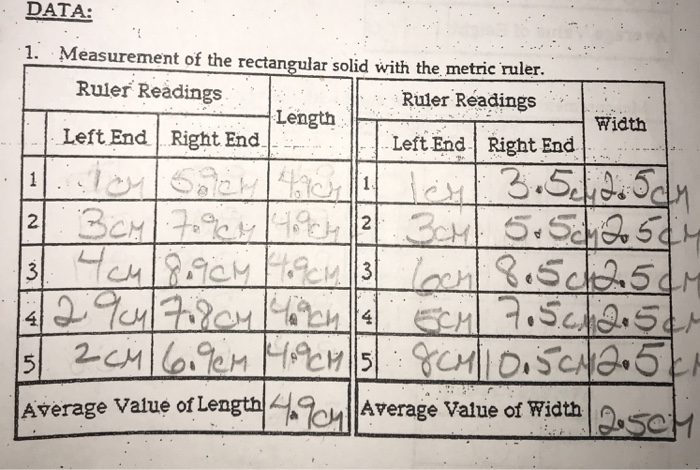 DATA:
1. Measurement of the rectangular solid with the metric ruler.
Ruler Readings Length Ruler Readings Width
Left End Right End Left End Right End
1 1cm 5.9cm 4.9cm 1 1cm 3.5cm 2.5cm
2 3cm 7.9cm 4.9cm 2 3cm 5.5cm 2.5cm
3 4cm 8.9cm 4.9cm 3 6cm 8.5cm 2.5cm
4 2.9cm 7.8cm 4.9cm 4 5cm 7.5cm 2.5cm
5 2cm 6.9cm 4.9cm 5 8cm 10.5cm 2.5cm
Average Value of Length 4.9cm Average Value of Width 2.5cm